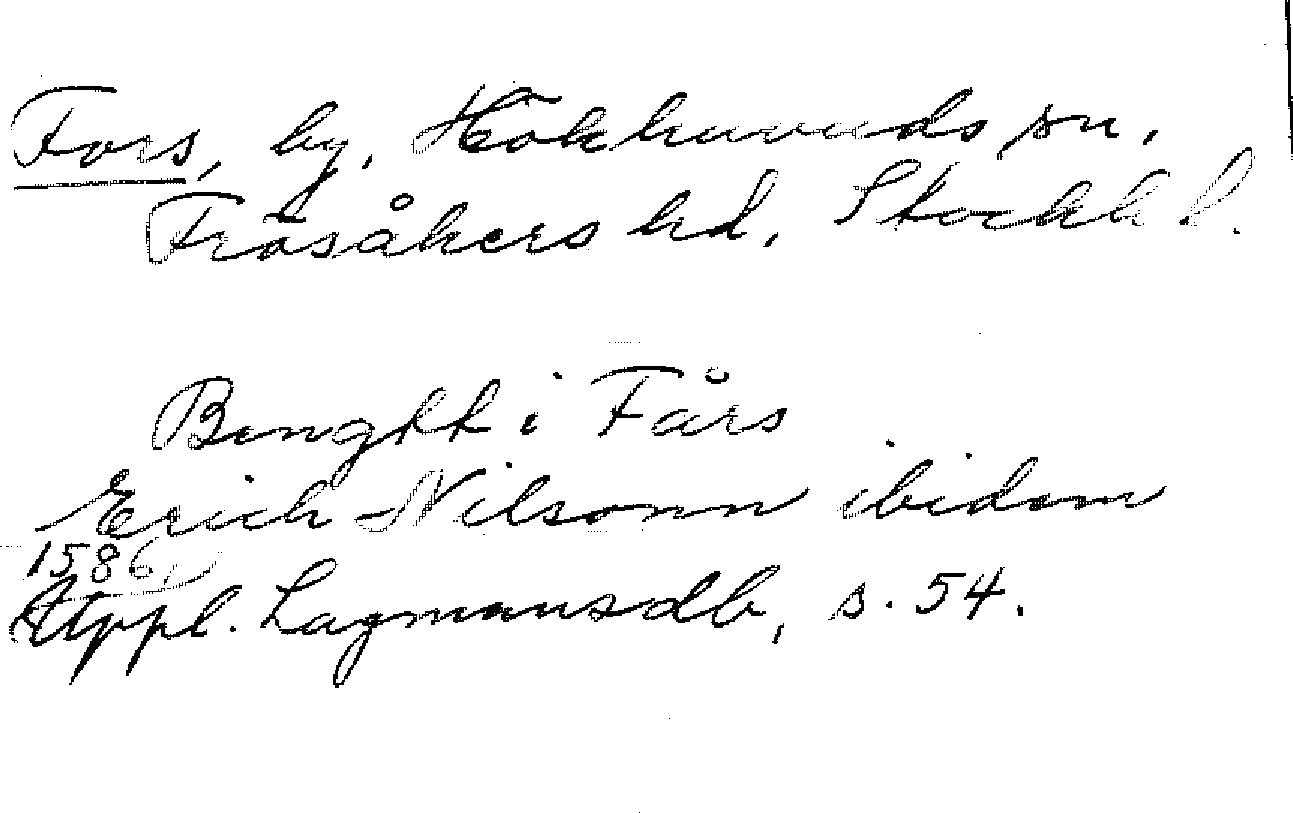 Fors, by, Hökhuvuds sn,
Frösåkers hd, Stockh l.
Bengtt i Fårs
Erich Nilsonn ibidem
1586,
Uppl. Lagmansdb, s. 54.